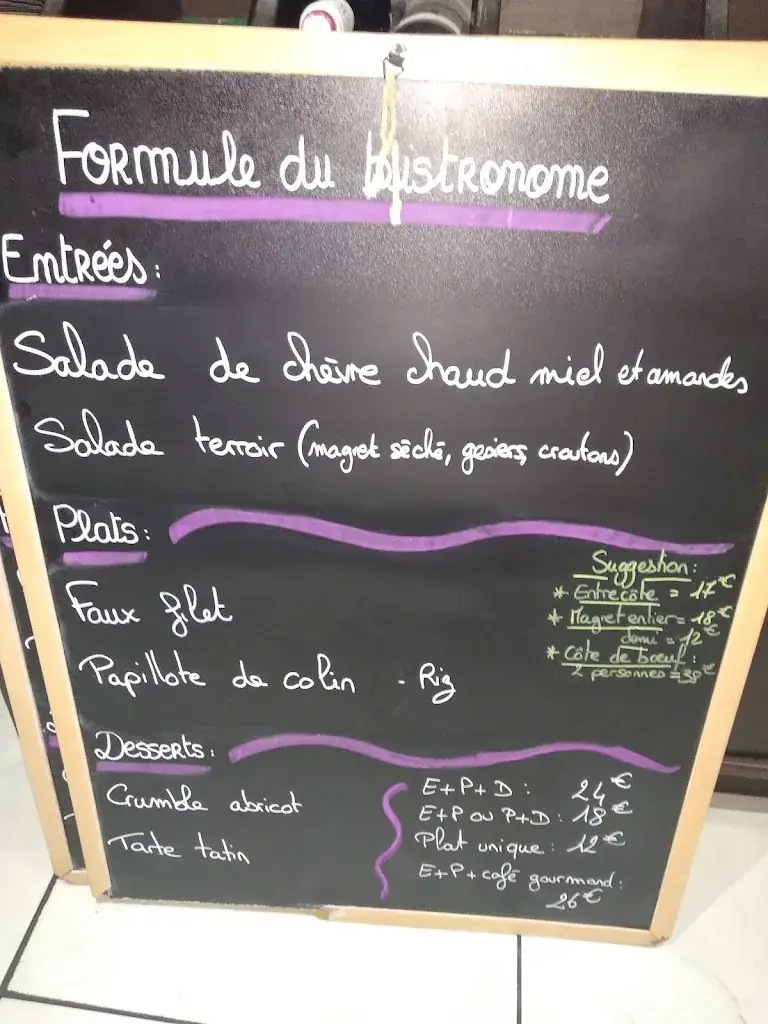 Formule du bistronome
Entrées:
Salade de chèvre chaud miel et amandes
Salade terroir (magret séché, gesiers, croutons)
Plats:
Faux filet
Papillote de colin - Riz
Suggestion:
* Entrecôte = 17€
* Magret entier = 18€
demi = 12€
* Côte de bœuf:
2 personnes = 38€
Desserts:
Crumble abricot
Tarte tatin
E+P+D: 24€
E+P ou P+D: 18€
Plat unique: 12€
E+P+café gourmand:
26€